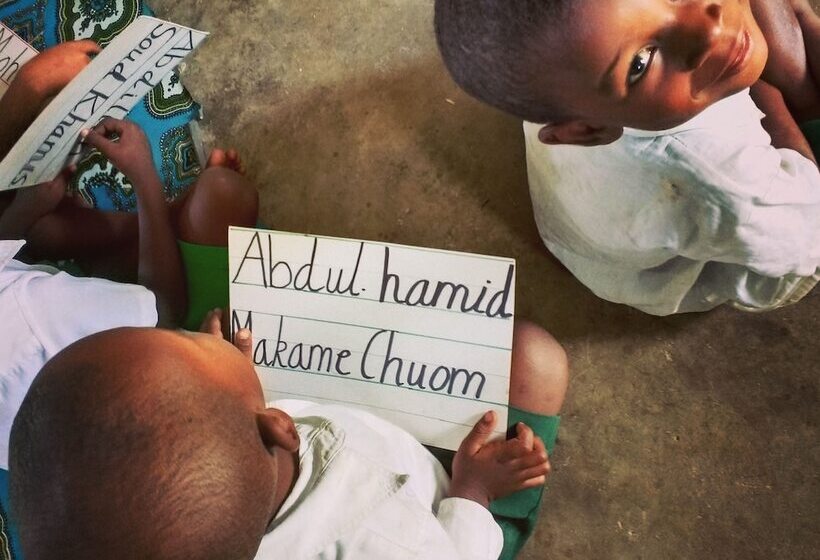 Moh
Abdil
Soud Khamus
Abdul. hamid
Makame Chuom